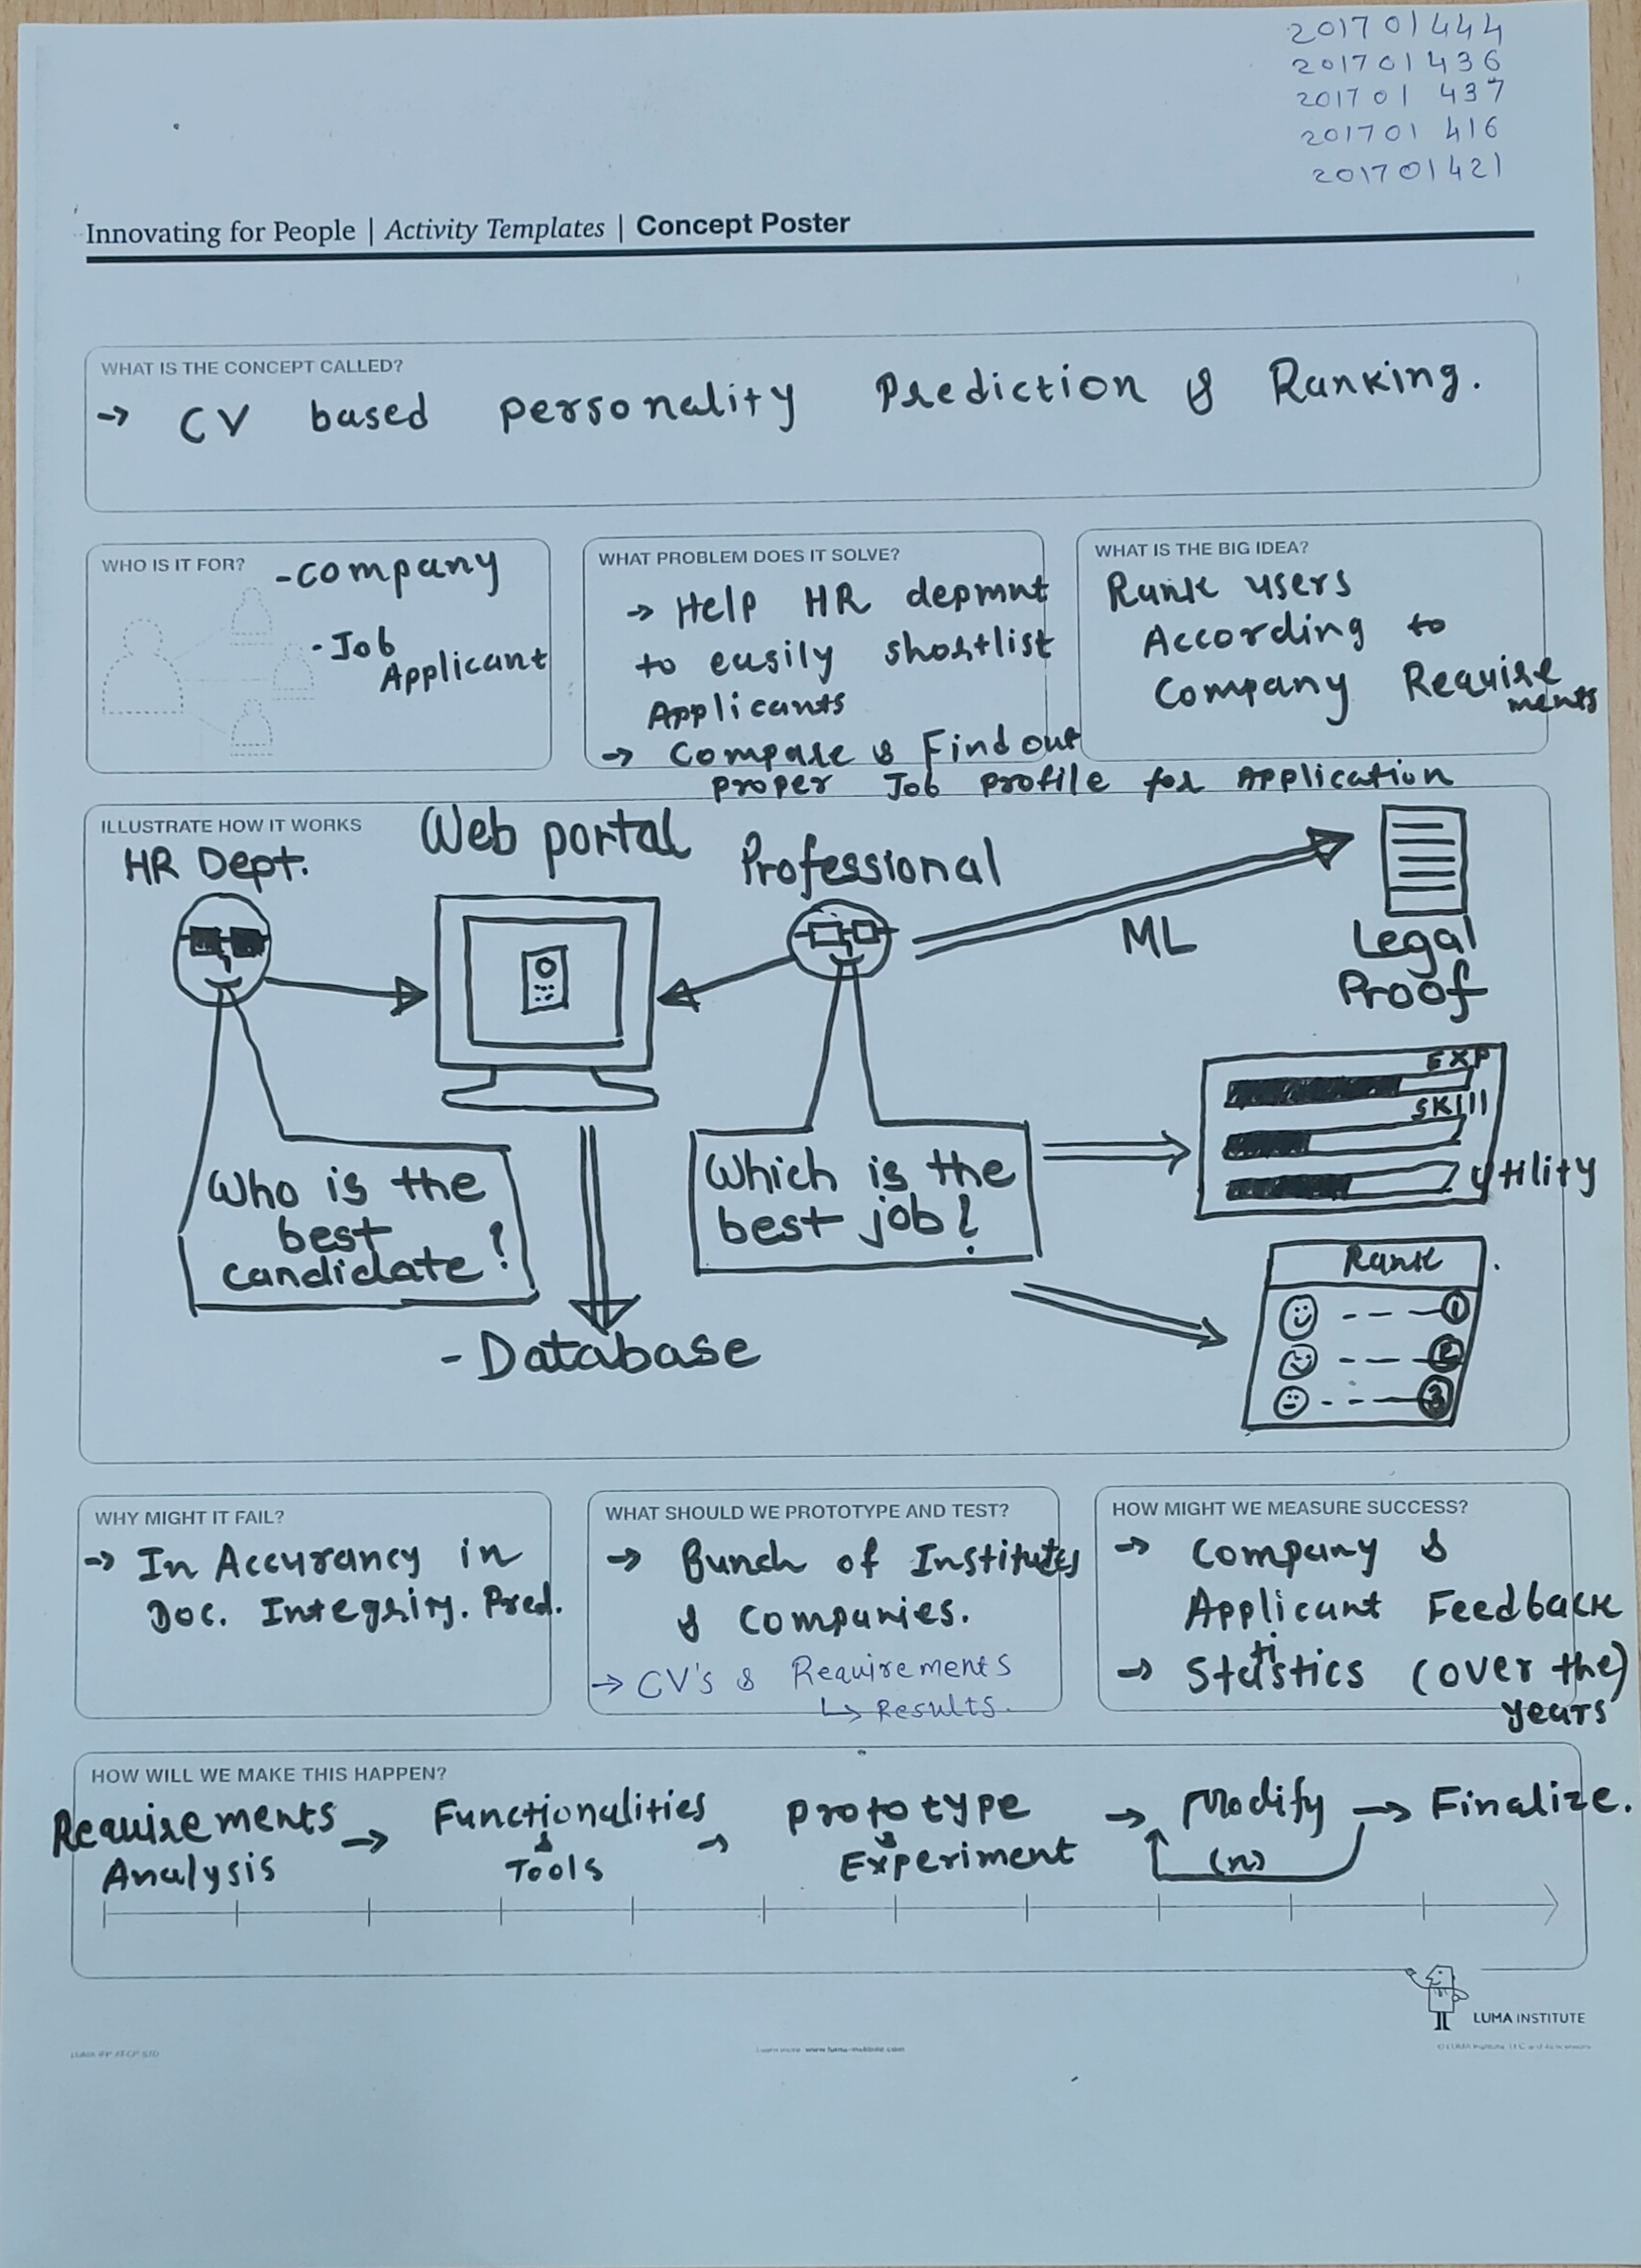 201701444
201701436
201701 437
201701 416
201701421
Innovating for People | Activity Templates | Concept Poster
WHAT IS THE CONCEPT CALLED?
→ CV based personality Prediction & Ranking.
WHO IS IT FOR?
- company
- Job
Applicant
WHAT PROBLEM DOES IT SOLVE?
→ Help HR depmnt
to easily shortlist
Applicants
→ Compare & Find out
proper Job profile for Application
WHAT IS THE BIG IDEA?
Rank users
According to
Company Require
ments
ILLUSTRATE HOW IT WORKS
HR Dept.
Web portal
Professional
ML
Legal
Proof
Who is the
best
candidate?
Which is the
best job?
EXP
SKIll
Utility
Rank
1
2
3
- Database
WHY MIGHT IT FAIL?
→ In Accurancy in
Doc. Integrity. Pred.
WHAT SHOULD WE PROTOTYPE AND TEST?
→ Bunch of Institutes
& Companies.
→ CV's & Requirements
↳ Results.
HOW MIGHT WE MEASURE SUCCESS?
→ Company &
Applicant Feedback
→ Statistics (over the)
years
HOW WILL WE MAKE THIS HAPPEN?
Requirements → Functionalities → Prototype → Modify → Finalize.
Analysis & Tools & Experiment (n)
LUMA INSTITUTE
Learn more www.luma-institute.com